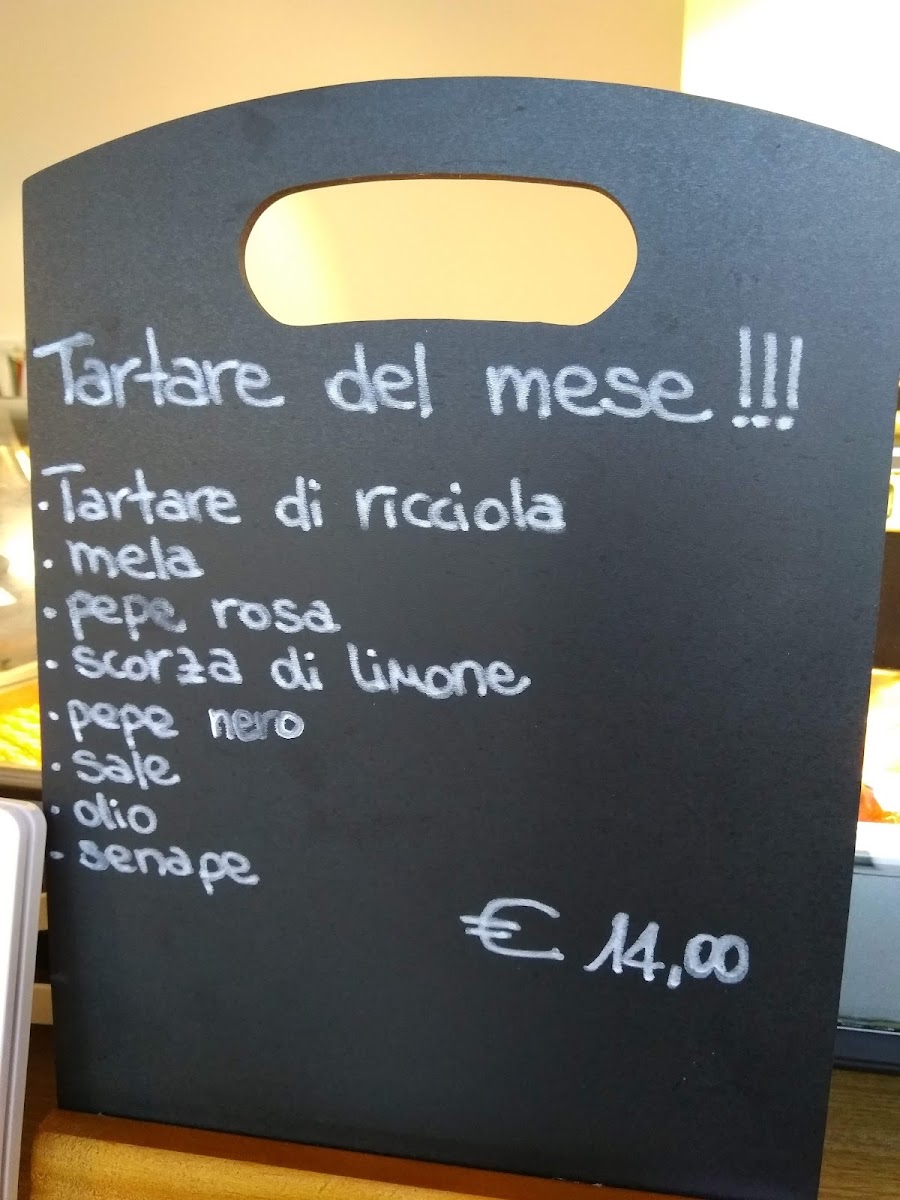 Tartare del mese !!!
· Tartare di ricciola
· mela
· pepe rosa
· scorza di limone
· pepe nero
· sale
· olio
- senape
€ 14,00